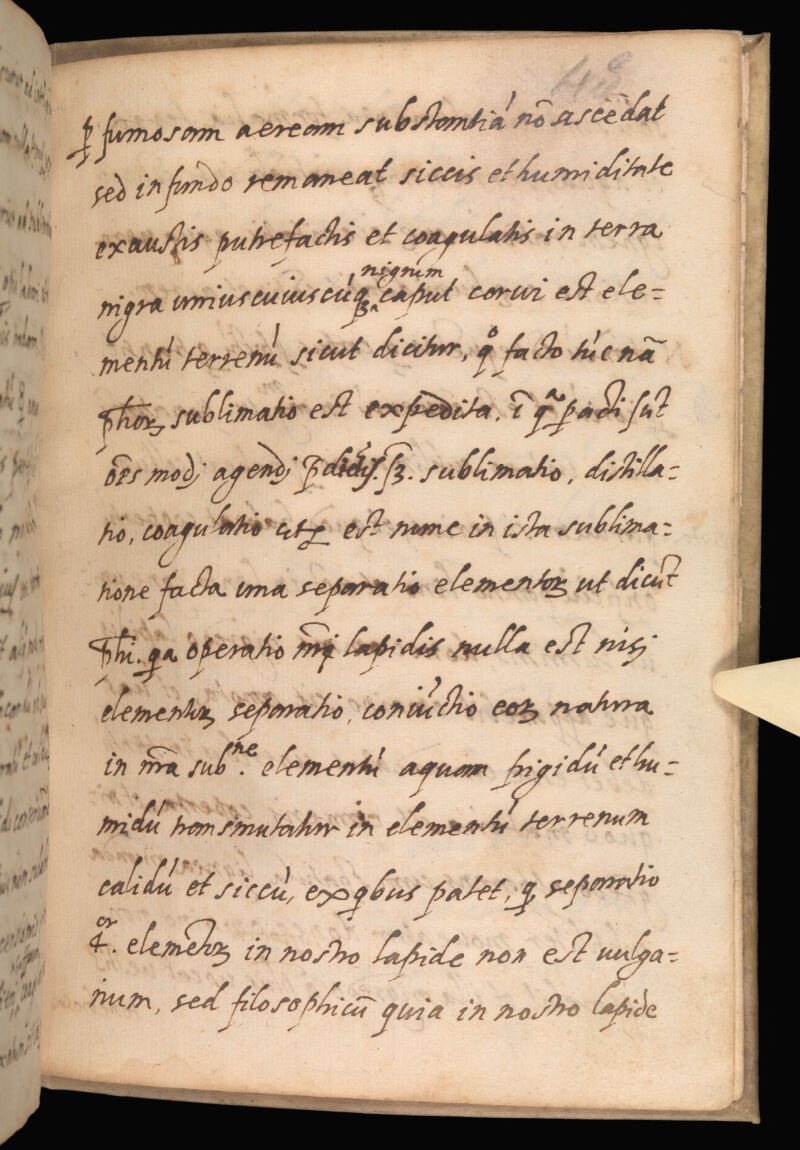 ꝑ fumosam aeream substantiá nō ascēdat
sed in fundo remaneat siccis et humiditate
exaustis putrefactis et coagulatis in terra
nigrum
nigra uniuscuiuscúqꝫ caput corui est ele=
mentú terrenú sicut dicitur, qͦ facto túc nā
ꝑhoꝝ sublimatio est expedita. ī qᵃ ꝑacti sūt
oēs modj agendj p̄dictis .sꝫ. sublimatio, distilla=
tio, coagulatio est nunc in ista sublima=
tione facta una separatio elementoꝝ ut dicūt
ꝑhi. qa operatio nr̄i lapidis nulla est nisj
elementoꝝ separatio, coniūctio eoꝝ natura
in nr̄a sub.ⁿᵉ elementú aquam frigidú et hu=
midú transmutatur in elementú terrenum
calidú et siccú, ex qbus patet, ꝙ separatio
4.ᵒʳ elemētoꝝ in nostro lapide non est uulga=
rium, sed filosophicū quia in nostro lapide